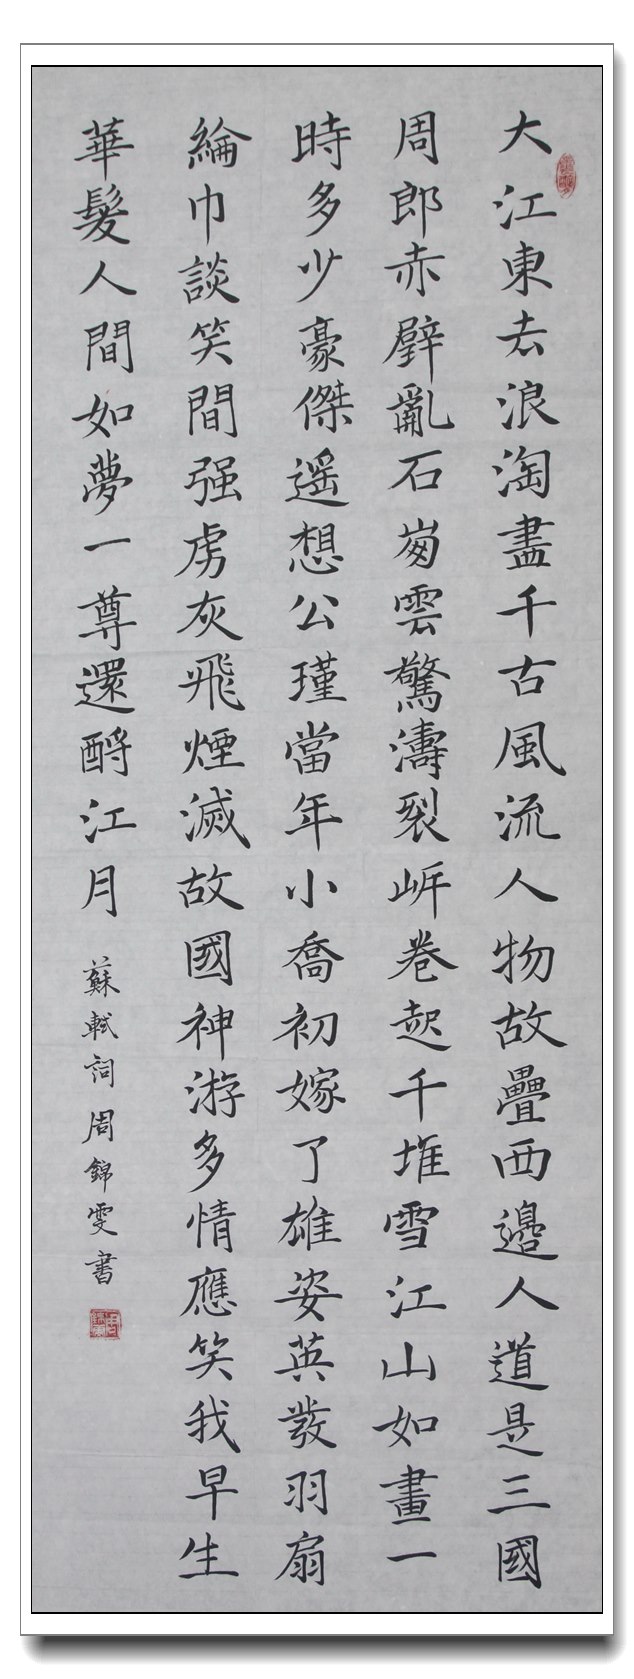 大江東去浪淘盡千古風流人物故疊西邊人道是三國
周郎赤壁亂石崩雲驚濤裂岍卷起千堆雪江山如畫一
時多少豪傑遥想公瑾當年小喬初嫁了雄姿英發羽扇
綸巾談笑間强虜灰飛煙滅故國神游多情應笑我早生
華髮人間如夢一尊還酹江月
蘇軾詞周錦雯書